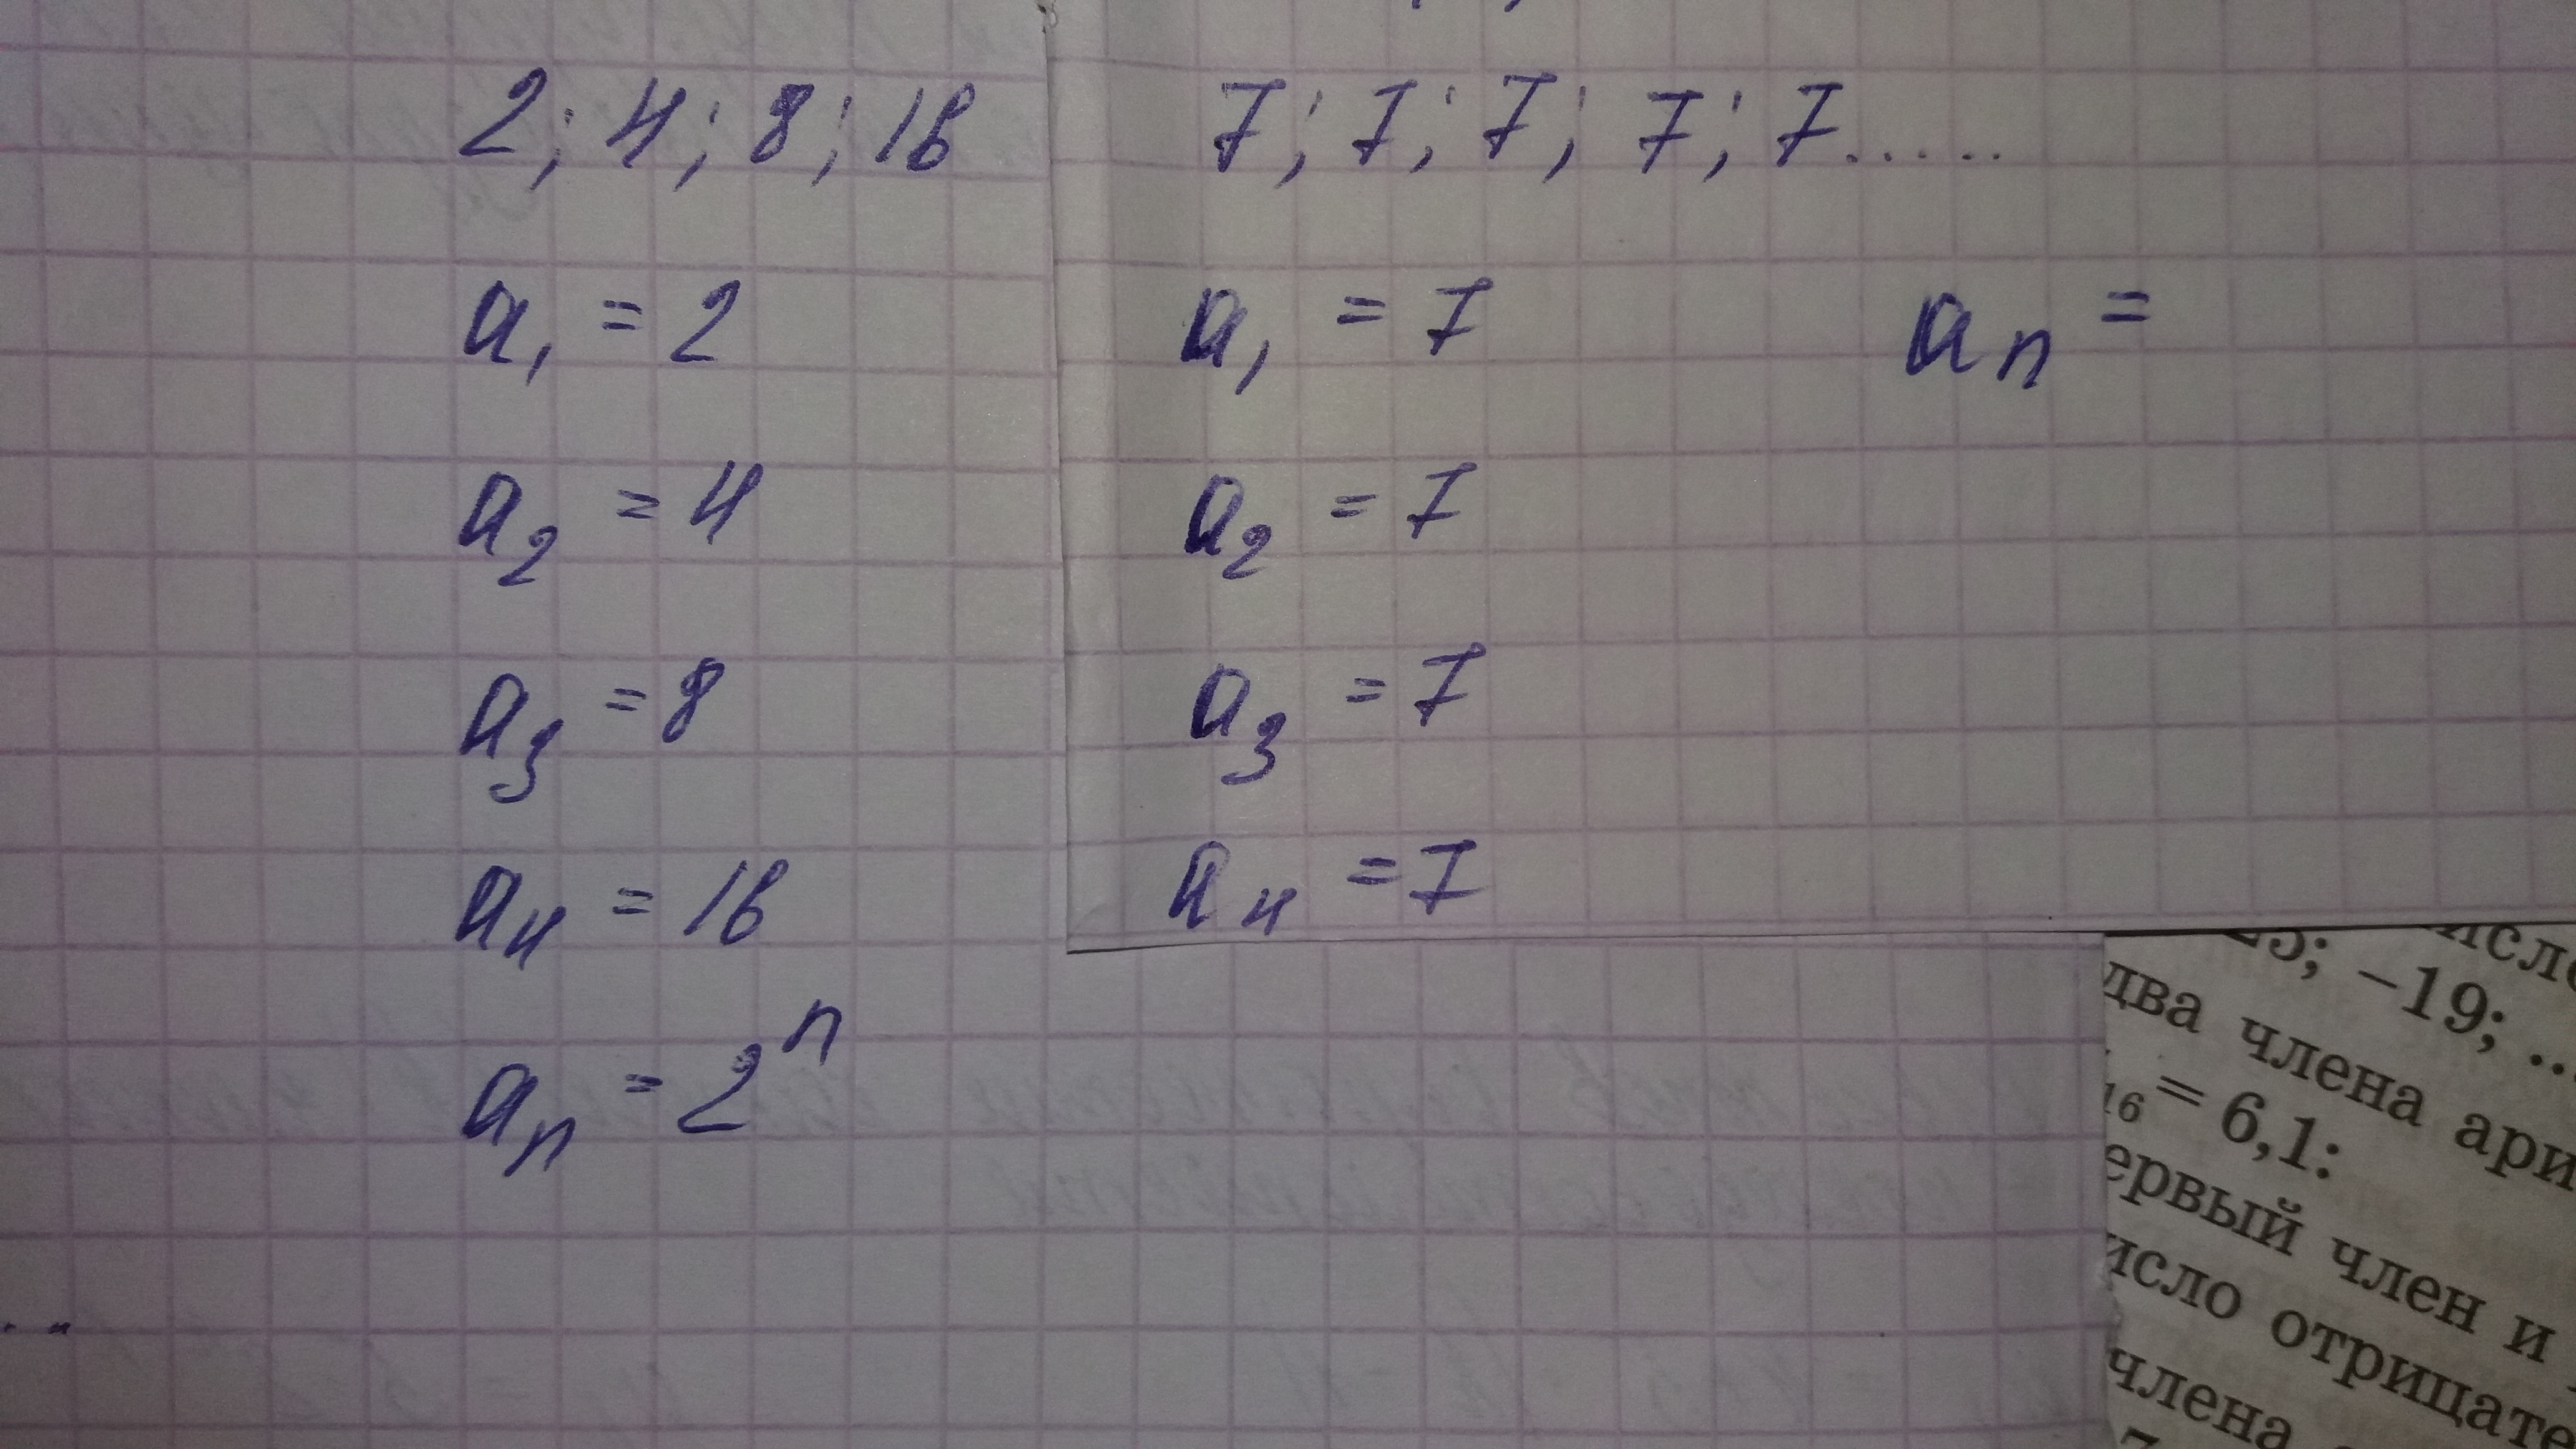 2; 4; 8; 16
a₁ = 2
a₂ = 4
a₃ = 8
a₄ = 16
aₙ = 2ⁿ
7; 7; 7; 7; 7.....
a₁ = 7
aₙ =
a₂ = 7
a₃ = 7
a₄ = 7
; −19; ...
два члена ари
₁₆ = 6,1:
ервый член и
исло отрицате
члена